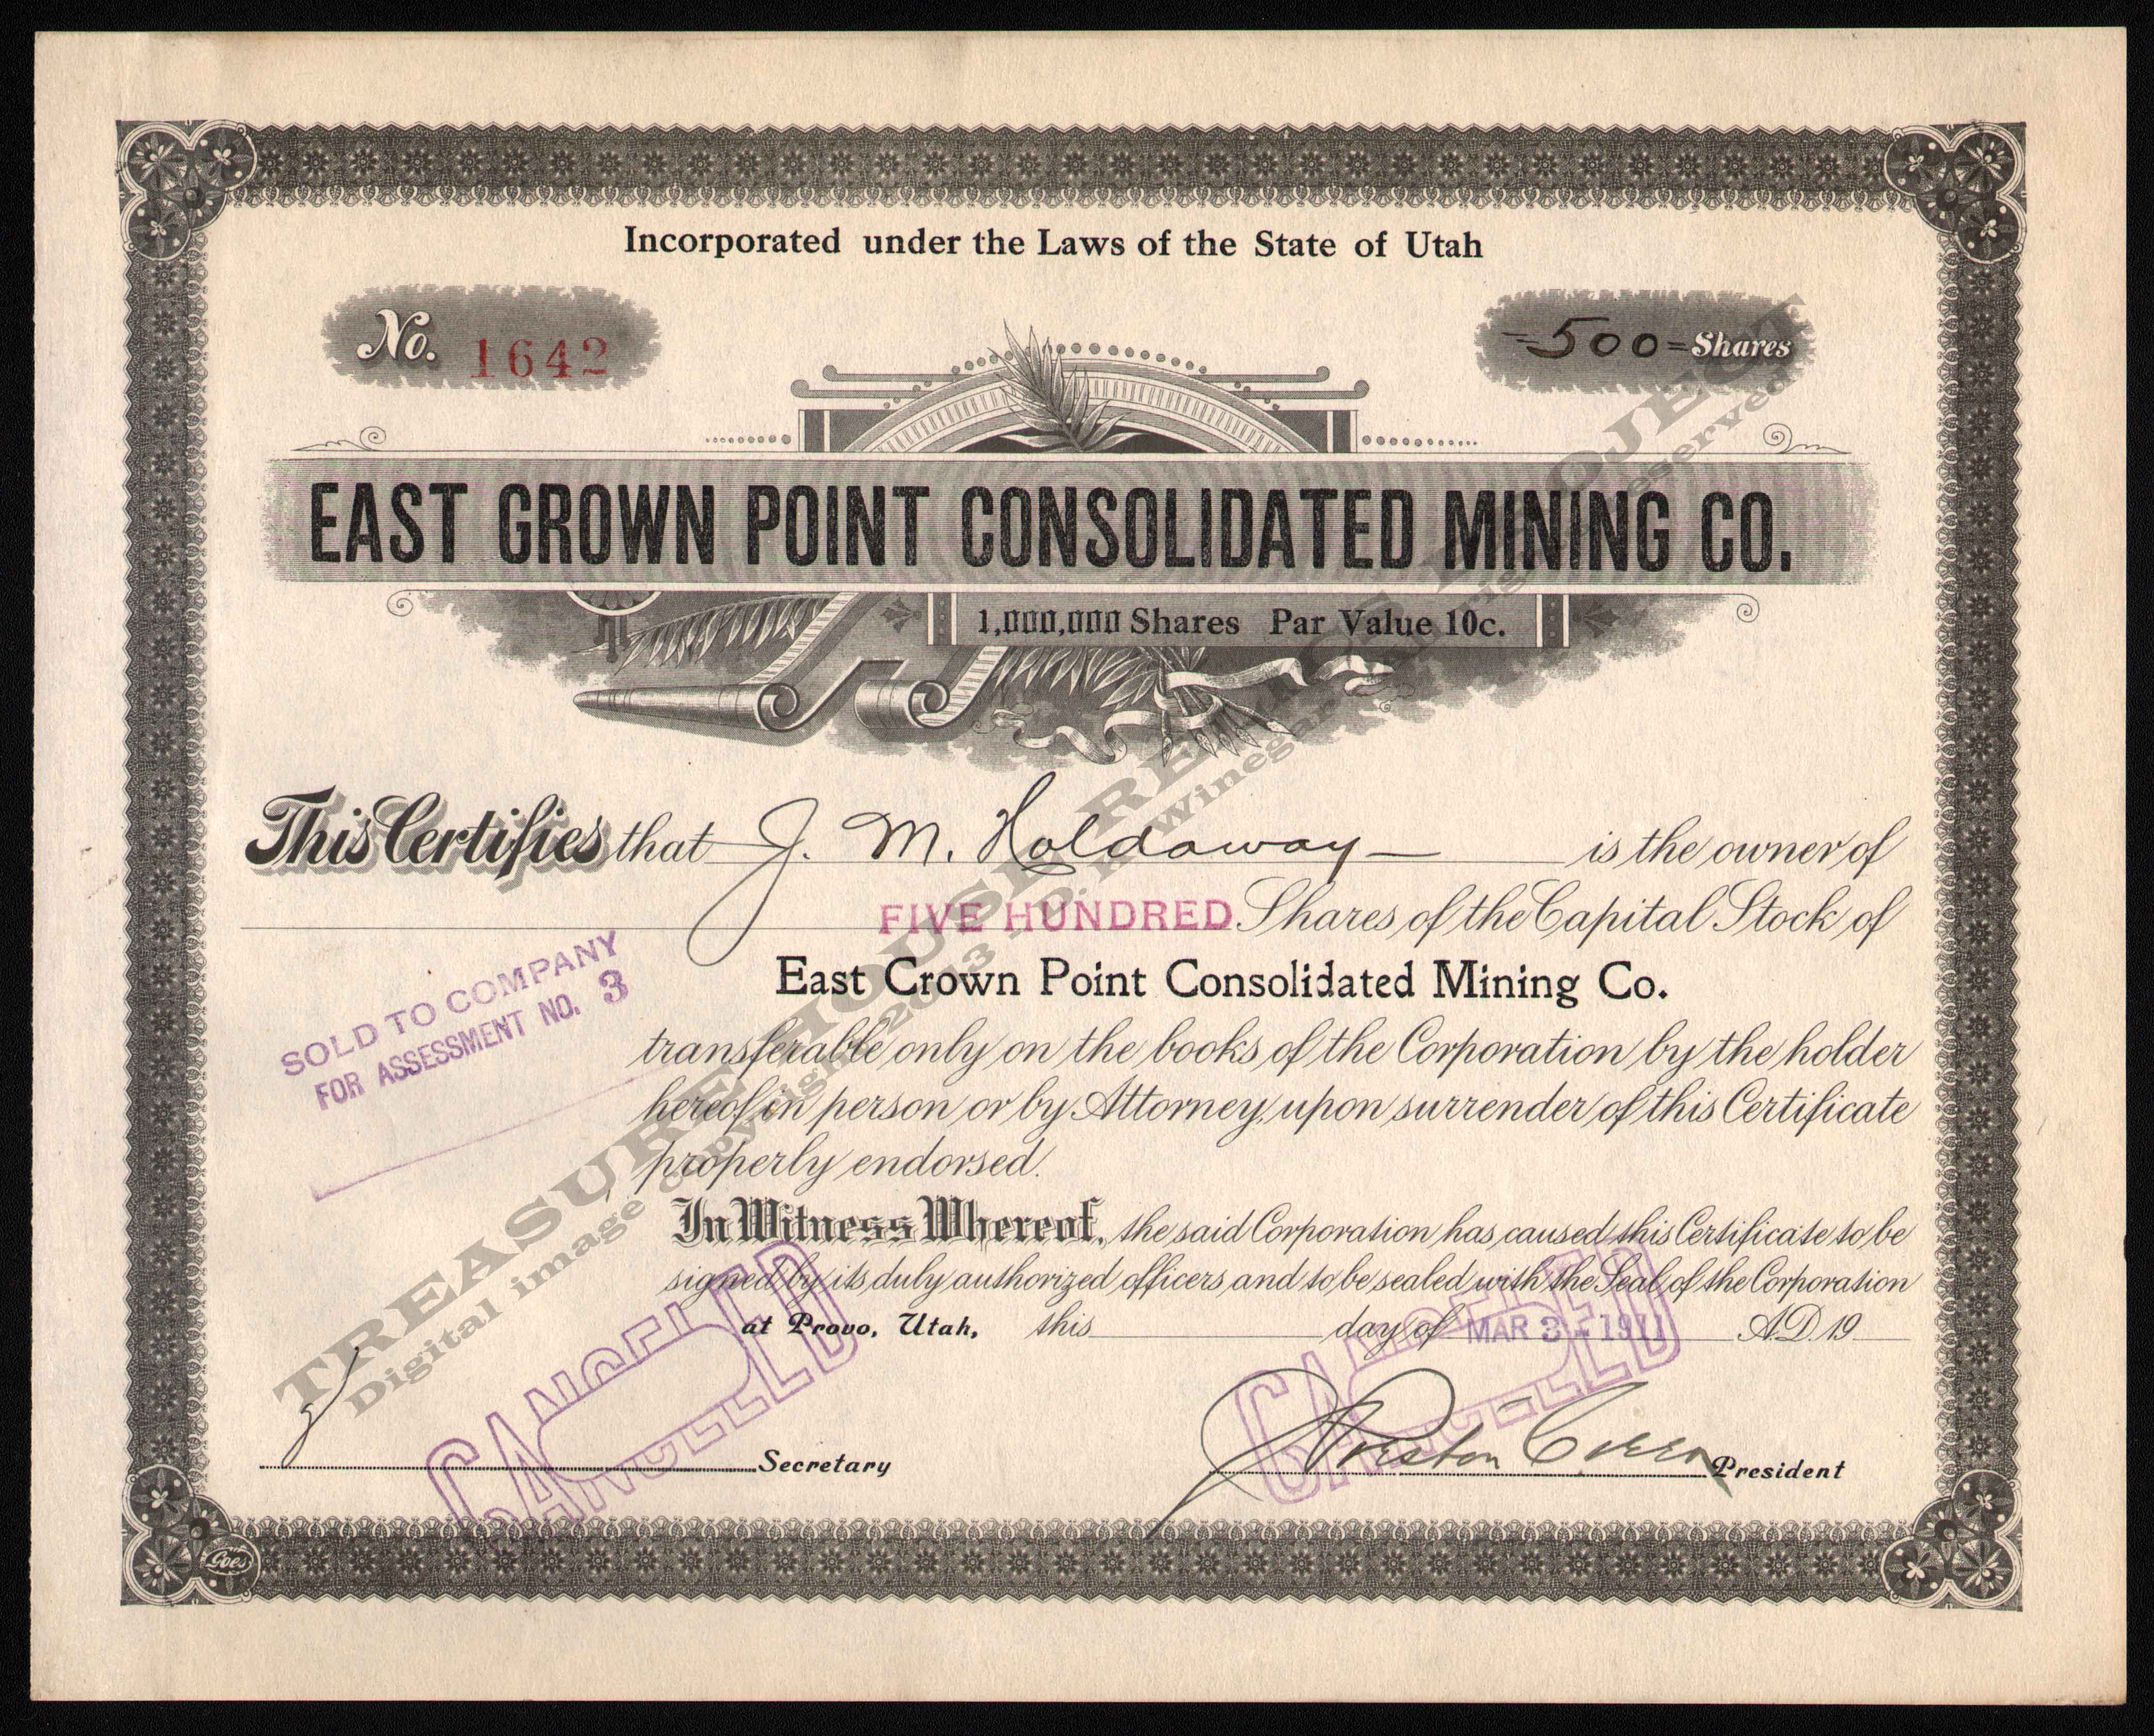 Incorporated under the Laws of the State of Utah
No. 1642
=500= Shares
EAST GROWN POINT CONSOLIDATED MINING CO.
1,000,000 Shares Par Value 10c.
This Certifies that J. M. Holdaway is the owner of
FIVE HUNDRED Shares of the Capital Stock of
East Crown Point Consolidated Mining Co.
SOLD TO COMPANY
FOR ASSESSMENT NO. 3
transferable only on the books of the Corporation by the holder
hereof in person or by Attorney, upon surrender of this Certificate
properly endorsed.
In Witness Whereof, the said Corporation has caused this Certificate to be
signed by its duly authorized officers and to be sealed with the Seal of the Corporation
at Provo, Utah, this day of MAR 3 - 1911 A.D. 19
CANCELLED
CANCELLED
Secretary
President
Goes
TREASURE HOUSE RELICS PROJECT
Digital image copyright 2013 Winegar All rights reserved